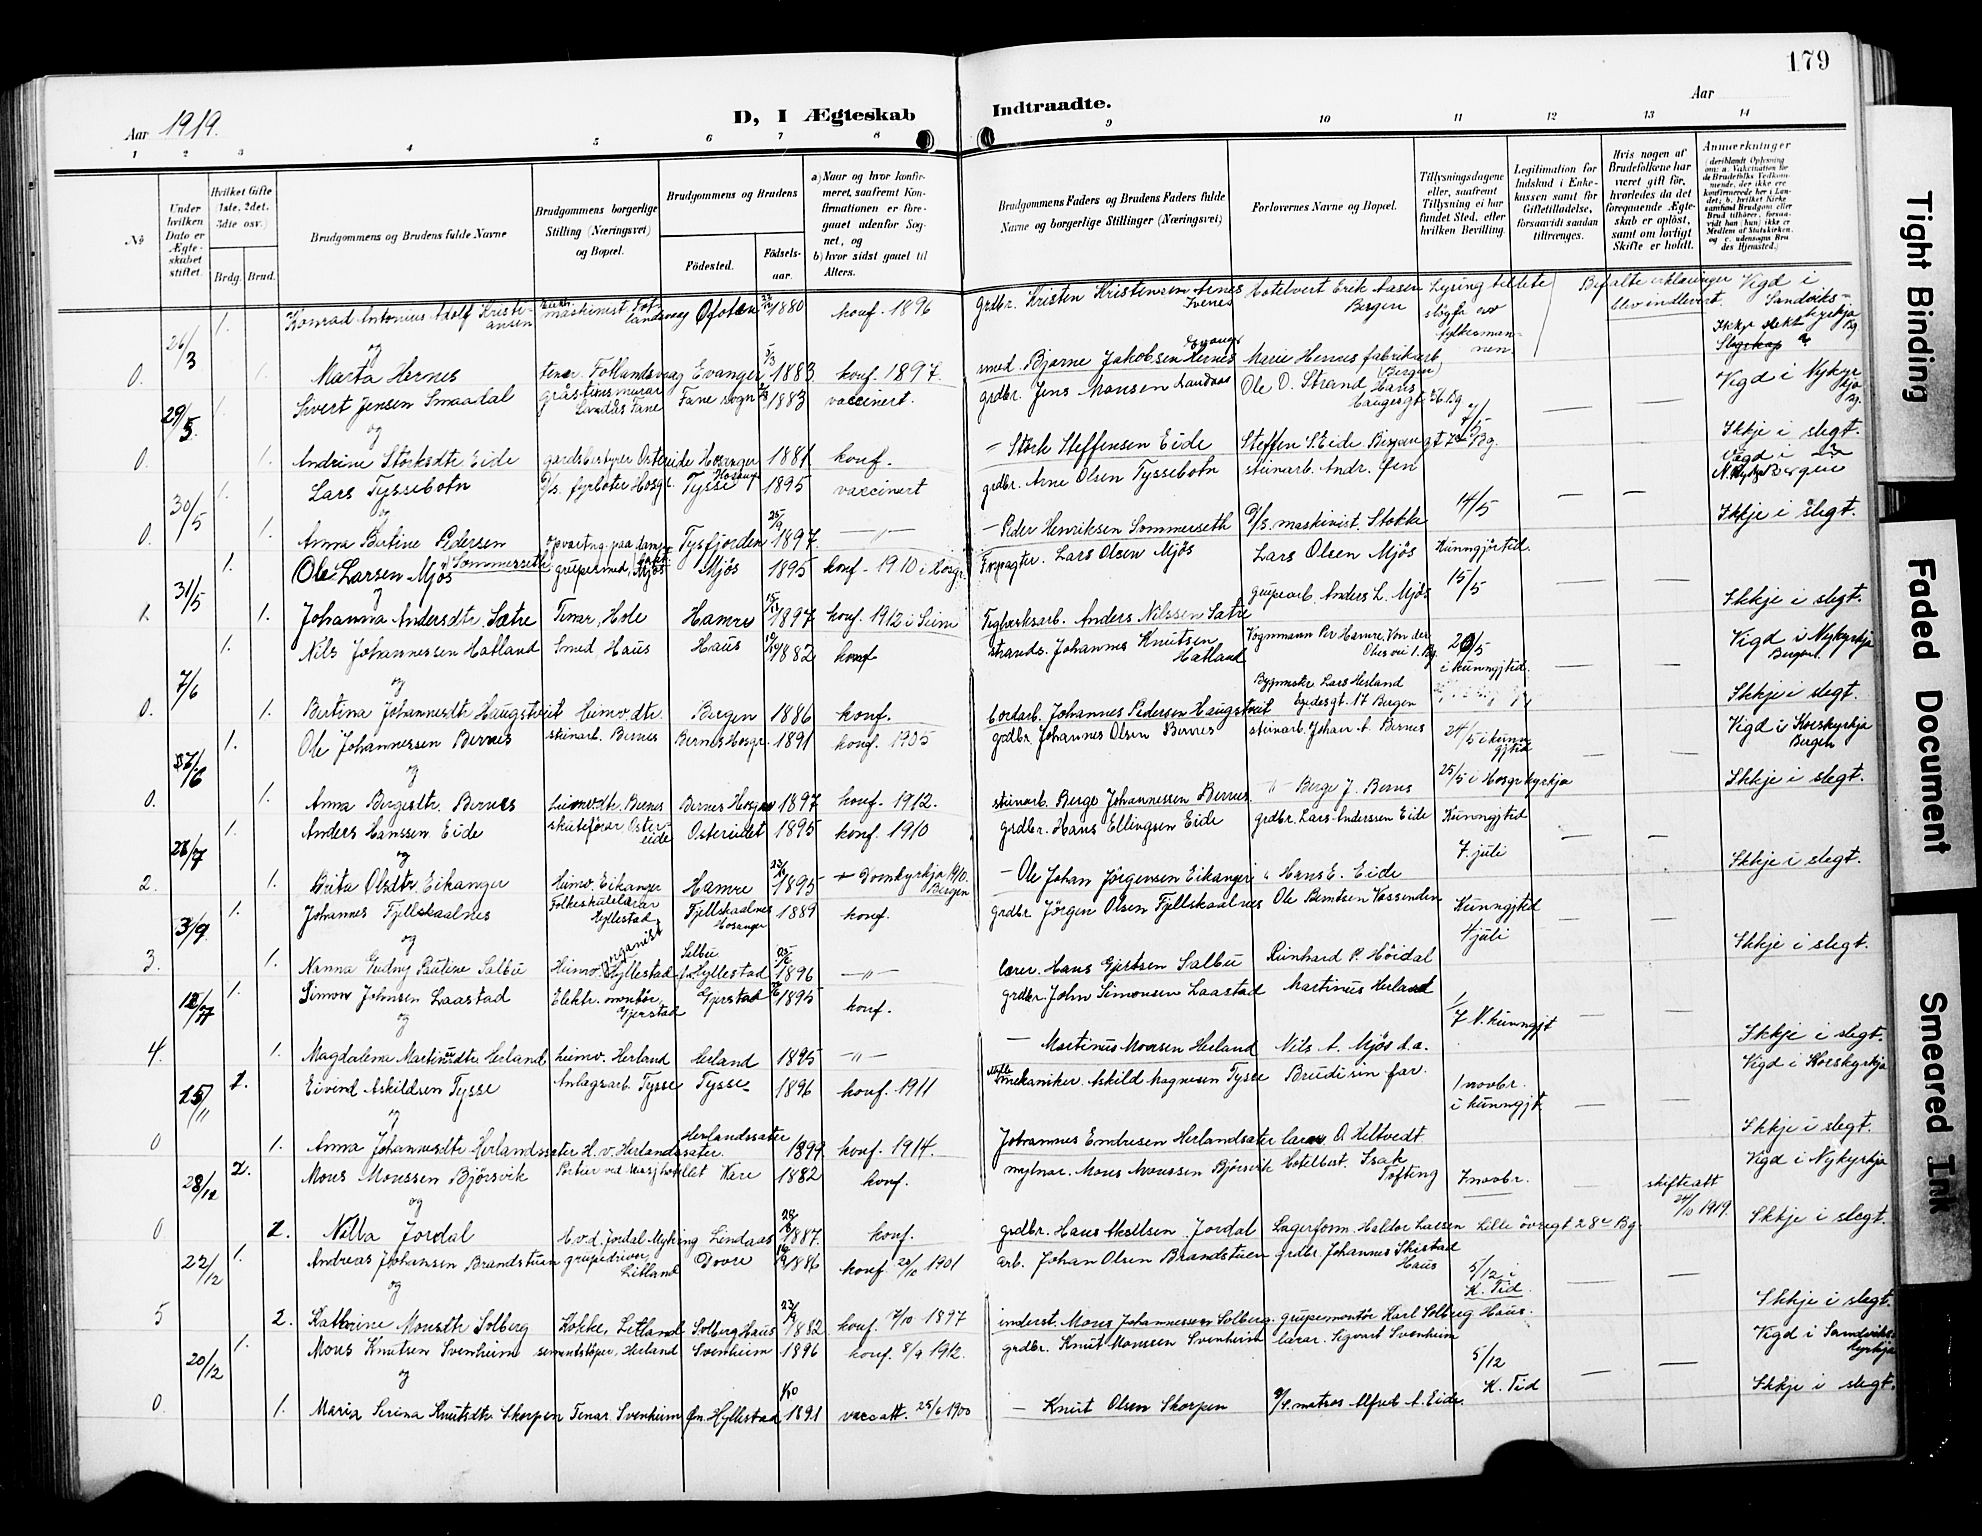 179
Aar 1919.
D, I Ægteskab Indtraadte.
Aar
1 2 3 4 5 6 7 8 9 10 11 12 13 14
No
Under hvilken Dato er Ægteskabet stiftet.
Hvilket Gifte (1ste, 2det, 3die osv.)
Brdg. Brud.
Brudgommens og Brudens fulde Navne
Brudgommens borgerlige Stilling (Næringsvei) og Bopæl.
Brudgommens og Brudens
Fødested.
Fødselsaar.
a) Naar og hvor konfirmeret, saafremt Konfirmationen er foregaaet udenfor Sognet, og
b) hvor sidst gaaet til Alters.
Brudgommens Faders og Brudens Faders fulde Navne og borgerlige Stillinger (Næringsvei)
Forlovernes Navne og Bopæl.
Tillysningsdagene eller, saafremt Tillysning ei har fundet Sted, efter hvilken Bevilling.
Legitimation for Indskud i Enkekassen samt for Giftetilladelse, forsaavidt saadan tiltrænges.
Hvis nogen af Brudefolkene har været gift før, hvorledes da det foregaaende Ægteskab er opløst, samt om lovligt Skifte er holdt.
Anmærkninger
(deriblandt Oplysning om: a. Vakcination for de Brudefolks Vedkommende, der ikke ere konfirmerede her i Landet; b. hvilket Kirkesamfund Brudgom eller Brud tilhører, forsaavidt han (hun) ikke er Medlem af Statskirken, og c. udensogns Brudes Hjemsted.)
1. Konrad Antonius Adolf Kristiansen maskinist Fotlandsvaag Ofoten 1880 konf. 1896 grdbr. Kristen Kristensen Arnes Evenes Hotelvert Erik Aasen Bergen Lysing tillete Vigd i Sandvikskyrkja Bg.
26/3 og
0. 1. Marta Hernes tenar. Fotlandsvaag Evanger 5/3 1883 konf. 1897. smed. Bjarne Jakobsen Hernes Evanger Marie Hernes fabrikarb. (Bergen) fylkesmannen Ikkje slekt
1. Sivert Jensen Smaadal Fane sogn 1883 vaccinert. grdbr. Jens Monsen Landaas Ole O. Strand Hans Haugesgt Bg Vigd i Nykyrkja Bg.
29/5. og
0. 1. Andrine Störksdtr Eide Ostereide Hosanger 1881 konf. – Störk Steffensen Eide Steffen S. Eide Bg. Ikkje i slegt.
1. Lars Tyssebotn D/s. fyrbøter Hosgr. Tysse Hosanger 1895 vaccinert grdbr. Arne Olsen Tyssebotn steinarb. Andr. Øen Vigd i Nykyrkja Bergen
30/5 og
0. 1. Anna Bertine Pedersen Sommerseth Tysfjorden 25/9 1897. –"– – Peder Henriksen Sommerseth D/S. maskinist. Stokke 14/5 Ikkje i slegt.
1. Ole Larsen Mjös Mjös 1895 konf. 1910 i Hosgr. Forpagter. Lars Olsen Mjös Lars Olsen Mjös Kunngjörtid.
31/5 og
1. 1. Johanna Andersdtr. Sætre Tenar, Hole Hamre 1897 konf. 1912 i Seim Teglverksarb. Anders Nilssen Sætre Anders L. Mjös 15/5 Ikkje i slegt.
1. Nils Johannessen Hatland Smed, Haus Haus 1882 konf strands. Johannes Knutsen Hatland Vognmann Per Hamre, Von der 20/5 i kunngjtid. Vigd i Nykyrkja Bergen
7/6 og
0. 1. Bertina Johannesdtr Haugstveit Heimv. dtr. Bergen 1886 konf. bordarb. Johannes Pedersen Haugstveit Bygmstr. Lars Herland Egedesgt. 17 Bergen Ikkje i slegt.
1. Ole Johannessen Bernes steinarb. Bernes Bernes Hosgr. 1891 konf. 1905 grdbr. Johannes Olsen Bernes steinarb. Johan A. Bernes 24/5 i kunngjtid Vigd i Korskyrkja Bergen
og
0. 1. Anna Bergesdtr. Bernes heimvdtr. Bernes Bernes Hosgr. 1897 konf. 1912. steinarb. Berge Johannessen Bernes –"– Berge J. Bernes 25/5 i Hosgrkyrkja Ikkje i slegt.
1. Anders Hanssen Eide skuteförar Ostereide Ostereidet 1895 konf. 1910 grdbr. Hans Ellingsen Eide grdbr. Lars Anderssen Eide Kunngjtid
28/7 og
2. 1. Brita Olsdtr. Eikanger Heimv. Eikanger Hamre 23/9 1895 Domkyrkja 1910. Bergen – Ole Johan Jörgensen Eikanger " Hans E. Eide 7. juli Ikkje i slegt.
1. Johannes Fjellskaalnes Folkeskulelærar Hyllestad Fjellskaalnes Hosanger 1889 konf. grdbr Jörgen Olsen Fjellskaalnes Ole Berntsen Vassenden Kunngjtid
3/9. og
3. 1. Nanna Gudny Pauline Salbu Heimv. Hyllestad organist Salbu Hyllestad 1896 –"– lærer. Hans Gjertsen Salbu Reinhard P. Höidal 4 juli Ikkje i slegt.
1. Simon Johnsen Laastad Elektr. montör, Gjerstad Gjerstad 1895 konf. grdbr. John Simonsen Laastad Martinus Herland
og
4. 1. Magdalena Martinusdtr Herland heimv. Herland Herland 1895 –"– – Martinus Monsen Herland Nils A. Mjös d.a. 1/7 N. kunngjt Ikkje i slegt.
1. Eivind Askildsen Tysse Anlagsarb. Tysse Tysse 1896 konf. 1911 mekaniker. Askild Magnesen Tysse Brudi sin far. 1 novbr. i kunngjt. Vigd i Korskyrkja
15/11 og
0 1. Anna Johannesdtr Herlandssæter H. v. Herlandssæter. Herlandssæter 1899 konf. 1914. Johannes Endresen Herlandsæter lærar O Heltvedt Ikkje i slegt.
2. Mons Monssen Björsvik Portier 1882 konf. mylnar. Mons Monssen Björsvik Hotelbest. Isak Tofting 7 novbr. skifteatt 24/10 1919. Vigd i Nykyrkja
28/12 og
0 1. Nilla Jordal H.v.d. Jordal-Myking Lindaas 1887. konf. grdbr. Hans Nedlsen Jordal Lagerform. Haldor Larsen Lille övregt 28 Bg. Ikkje i slegt.
1. Andreas Johansen Brandstuen grupedriver, Litland Dovre 1886 konf 1901 arb. Johan Olsen Brandstuen grdbr. Johannes Skistad Haus
22/12 og
5 2. Kathrine Monsdtr Solberg Kokke, Litland Solberg Haus 23/9 1882 konf. 7/10 1897 inderst. Mons Johannessen Solberg. grupemontör Karl Solberg Haus. 5/12 i K. Tid. Ikkje i slegt.
1. Mons Knutsen Svenheim sementstöper, Herland Svenheim 1896 konf. 8/9 1912. grdbr. Knut Monsen Svenheim lærar. Sigvart Svenheim Vigd i Sandvikskyrkja
20/12 og
0. 1. Maria Serina Knutsdtr Skorpen Tenar. Svenheim Hyllestad 1891 vaccatt. 25/6 1900 – Knut Olsen Skorpen D/S. matros Alfred A. Eide. 5/12 K. Tid Ikkje i slegt.
Tight Binding
Faded Document
Smeared Ink